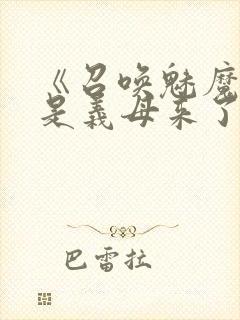 《召唤魅魔
是义母来了
巴雷拉